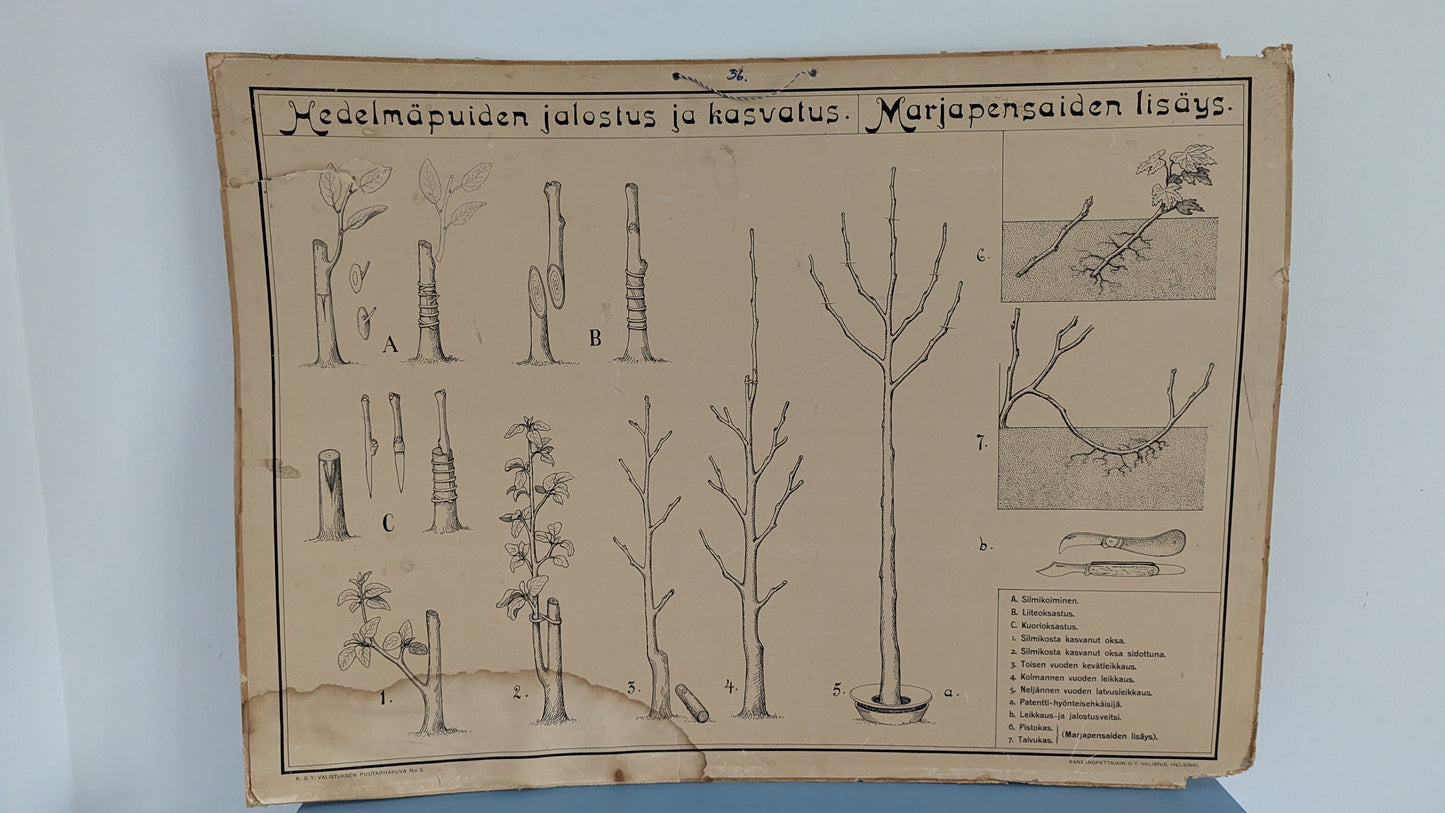 36.
Hedelmäpuiden jalostus ja kasvatus.
Marjapensaiden lisäys.
A
B
C
1.
2.
3.
4.
5.
a.
6.
7.
b.
A. Silmikoiminen.
B. Liiteoksastus.
C. Kuorioksastus.
1. Silmikosta kasvanut oksa.
2. Silmikosta kasvanut oksa sidottuna.
3. Toisen vuoden kevätleikkaus.
4. Kolmannen vuoden leikkaus.
5. Neljännen vuoden latvusleikkaus.
a. Patentti-hyönteisehkäisijä.
b. Leikkaus-ja jalostusveitsi.
6. Pistokas.
7. Taivukas.
(Marjapensaiden lisäys).
K. O. Y. VALISTUKSEN PUUTARHAKUVA N:o 2.
O. Y. VALISTUS, HELSINKI.